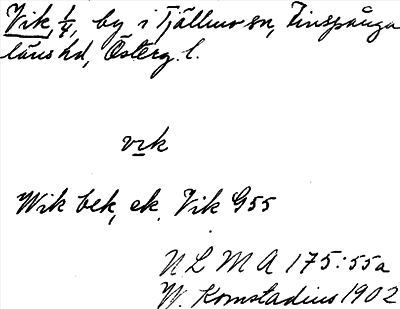 Vik, 1/4, by i Tjällmo sn, Finspånga
läns hd, Österg. l.
vik
Wik bek, ek. Vik G55
NLMA 175:55a
W. Kornstadius 1902